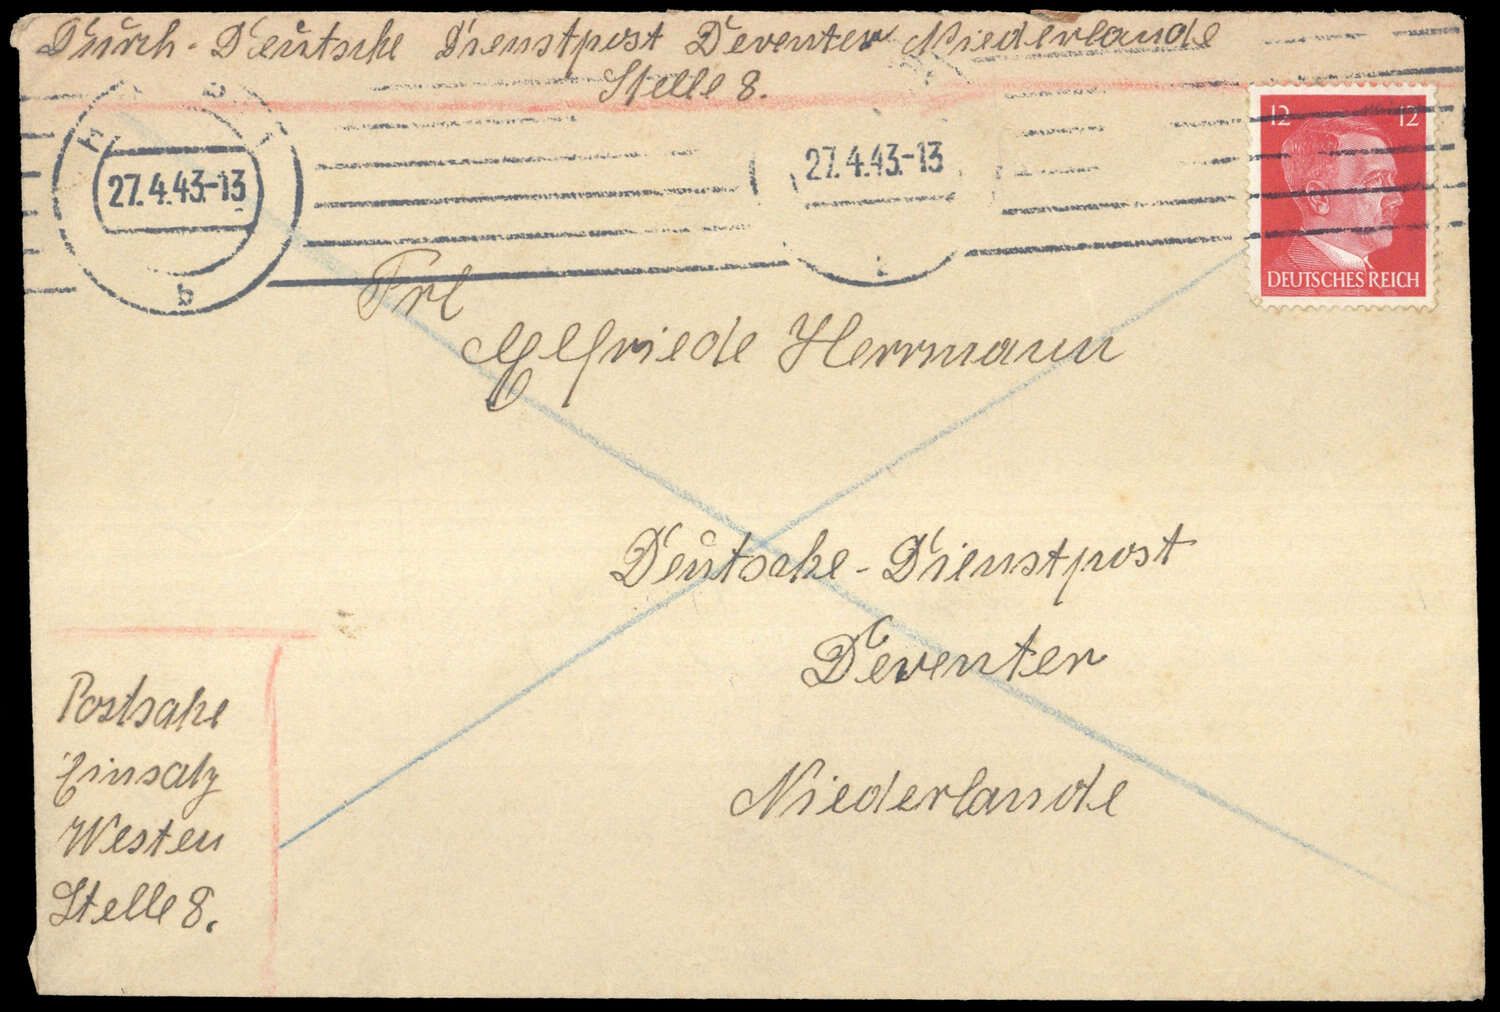 Durch - Deutsche Dienstpost Deventer Niederlande
Stelle 8.
27.4.43-13
b
27.4.43-13
12 12
DEUTSCHES REICH
Frl
Elfriede Herrmann
Deutsche - Dienstpost
Deventer
Niederlande
Postsache
Einsatz
Westen
Stelle 8.